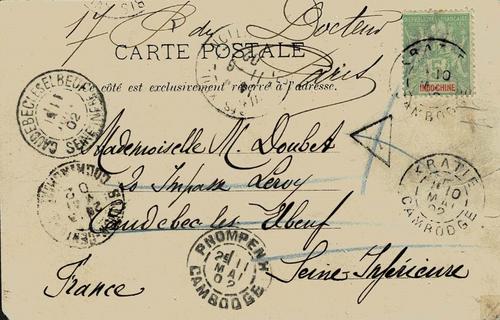 17 R du Docteur
Paris
CARTE POSTALE
côté est exclusivement réservé à l'adresse.
INDOCHINE
KRATIE
10
CAMBODGE
CAUDEBEC-LES-ELBEUF
SEINE
02
Mademoiselle M. Doubet
20 Impasse Leroy
Caudebec les Elbeuf
Seine Inférieure
France
KRATIE
10
MAI
02
CAMBODGE
PNOMPENH
MAI
02
CAMBODGE